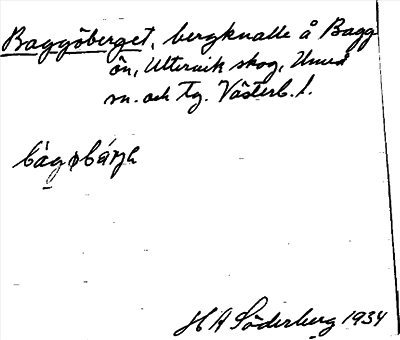 Baggöberget, bergknalle å Bagg
ön, Ultervik skog, Umeå
sn. och tg. Västerb. l.
bágøbárjh
H A Söderberg 1934